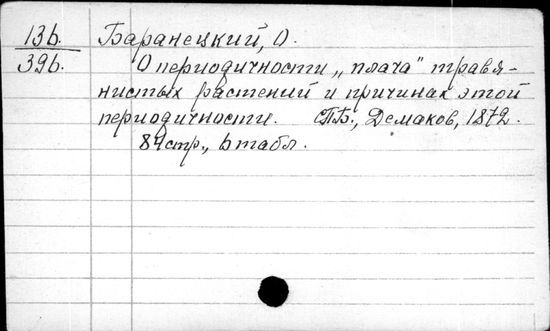 13б. Баранецкий, О.
39б. О периодичности „плача" травя-
нистых растений и причинах этой
периодичности. СПБ., Демаков, 1872.
84 стр., 6 табл.